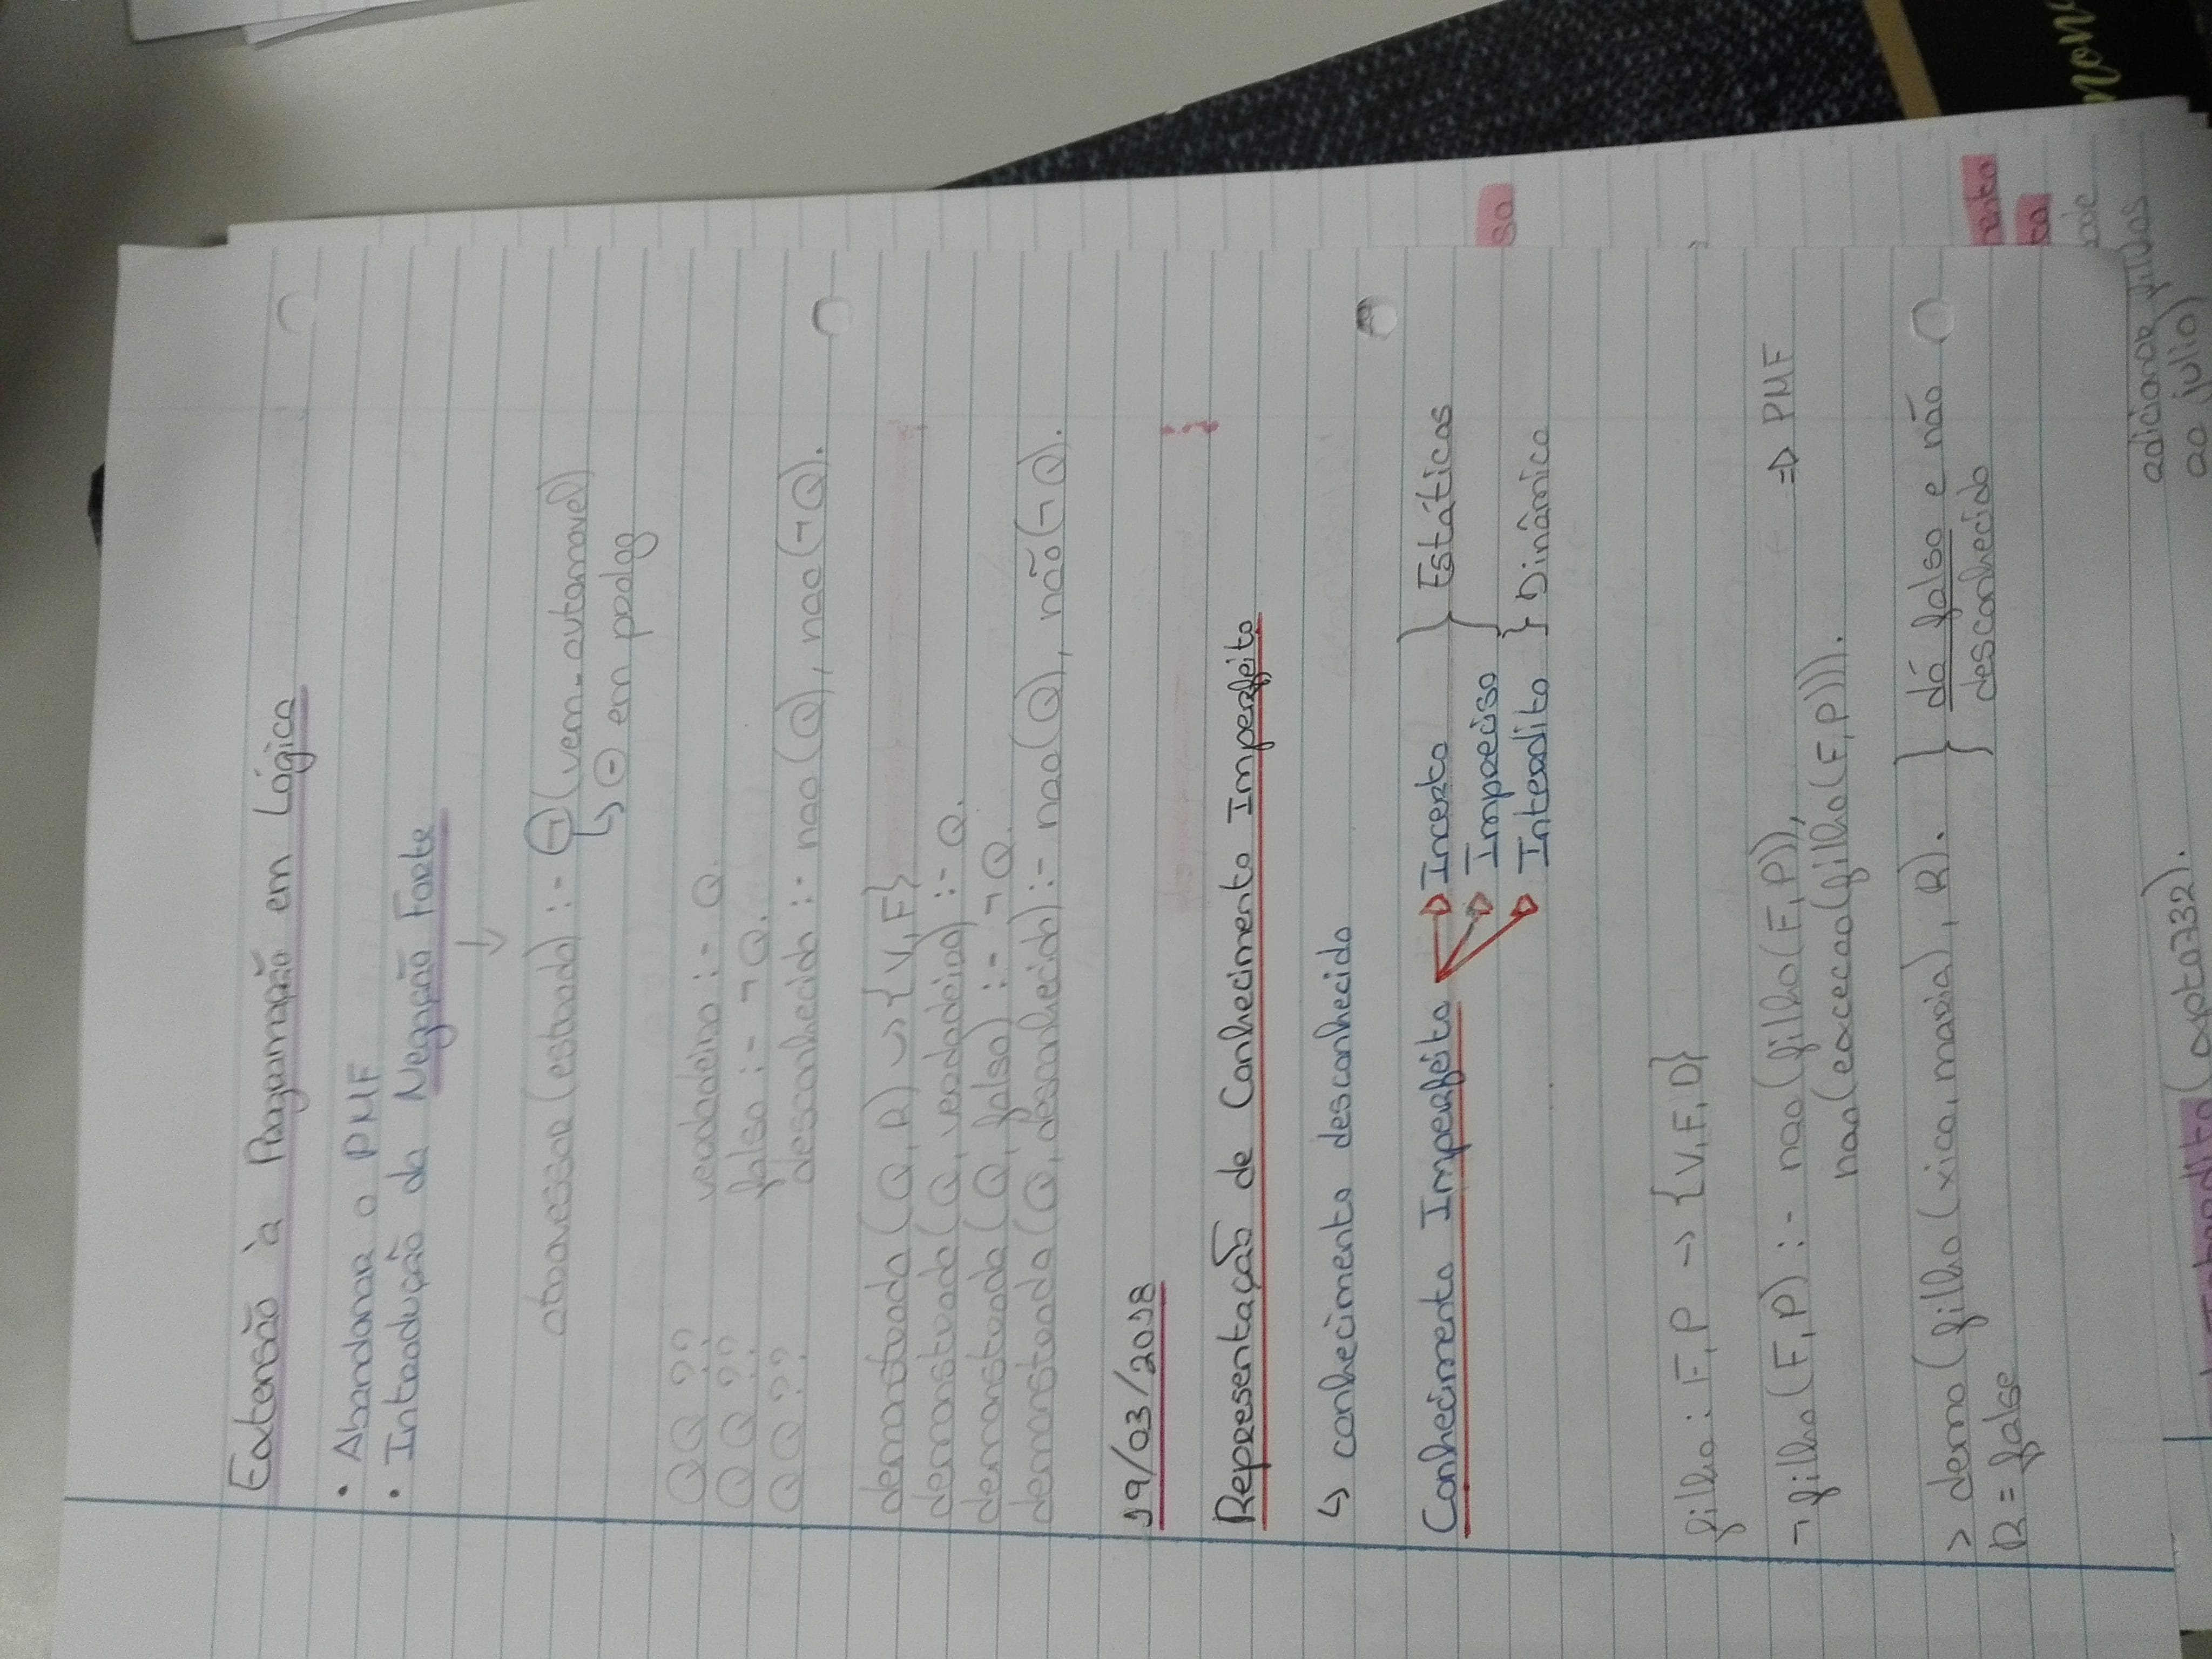 Extensão à Programação em Lógica
• Abandonar o PMF
• Introdução da Negação Forte
↓
atravessar (estrada) :- ¬ (vem-automovel)
↳ ⊖ em prolog
Q Q ?? verdadeiro :- Q.
Q Q ?? falso :- ¬ Q.
Q Q ?? desconhecido :- nao (Q), nao (¬ Q).
demonstrado (Q, R) ↝ {V, F}
demonstrado (Q, verdadeiro) :- Q.
demonstrado (Q, falso) :- ¬ Q.
demonstrado (Q, desconhecido) :- nao (Q), não (¬ Q).
19/03/2018
Representação de Conhecimento Imperfeito
↳ conhecimento desconhecido
Conhecimento Imperfeito → Incerto } Estáticos
→ Impreciso
→ Interdito } Dinâmico
filho : F, P → {V, F, D}
¬ filho (F, P) :- nao (filho (F, P)), ⇒ PMF
nao (excecao (filho (F, P))).
> demo (filho (xico, maria), R). } dá falso e não
R = false desconhecido
adicionar
ao júlio)